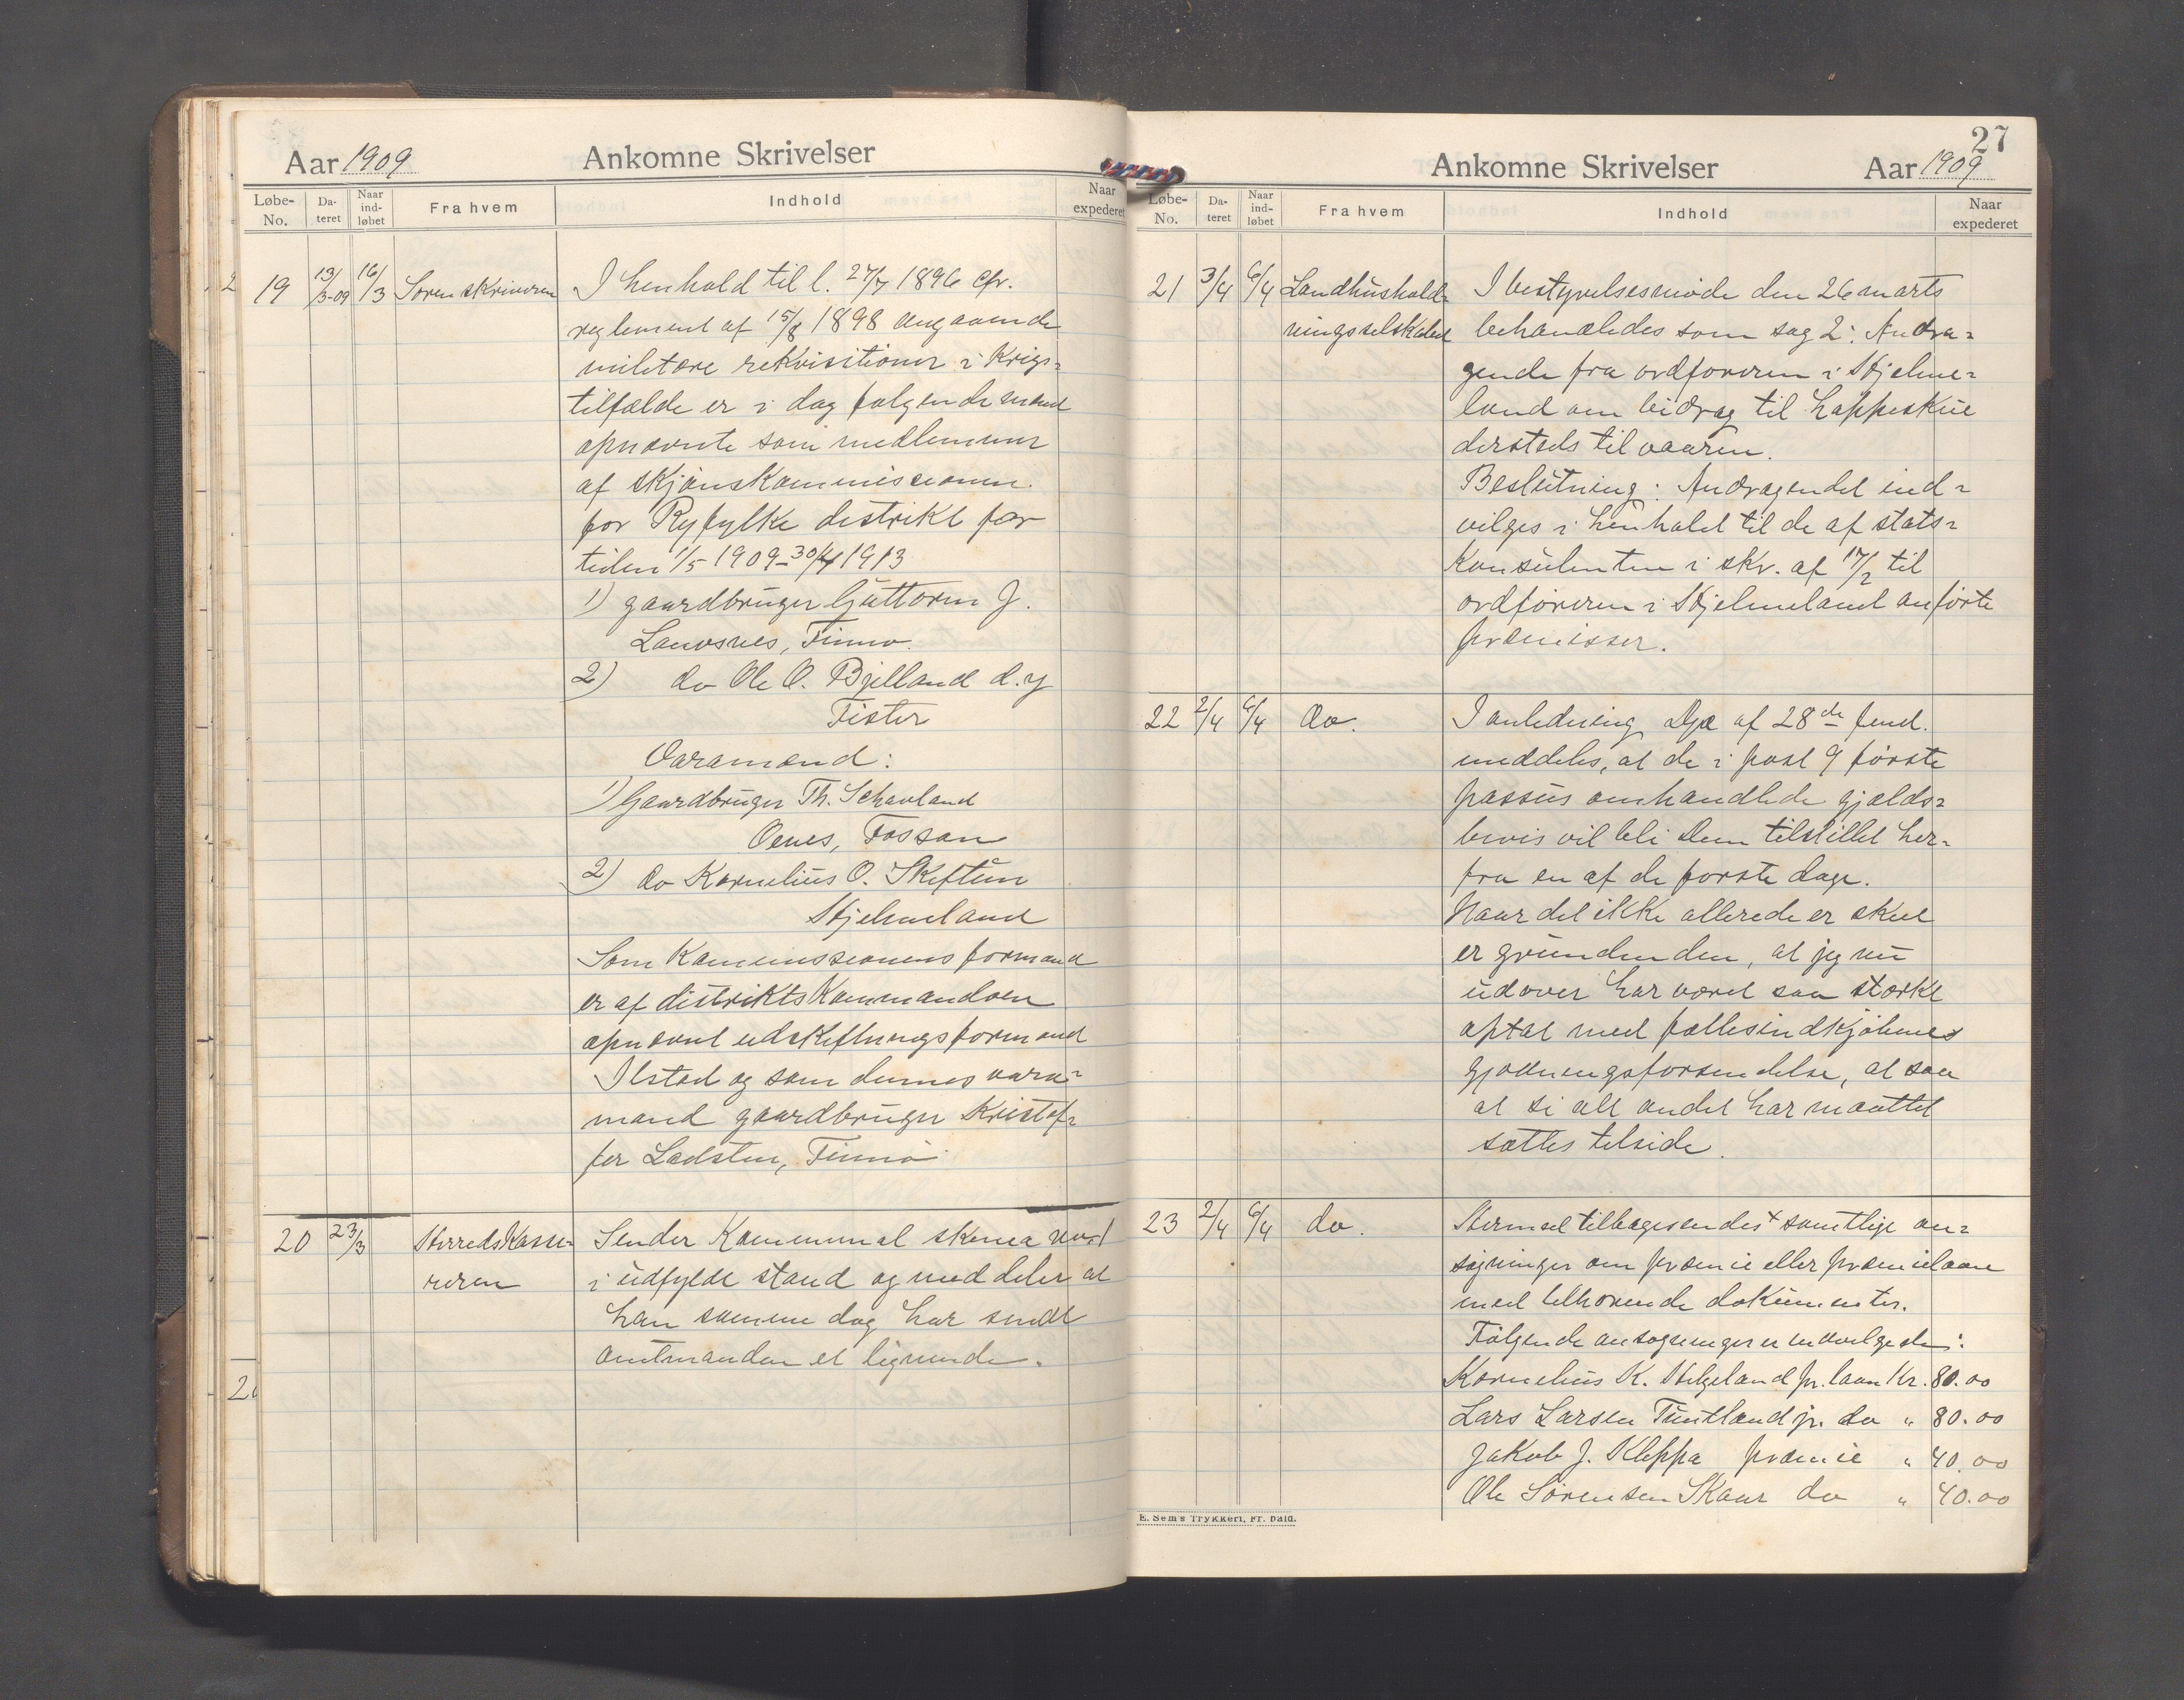 Aar 1909 Ankomne Skrivelser
Løbe-No. Da-teret Naar ind-løbet Fra hvem Indhold Naar expederet
19 13/3-09 16/3 Sorenskriveren I henhold til l. 27/7 1896 cfr.
reglement af 15/8 1898 angaaende
militære rekvisitioner i Krigs=
tilfælde er i dag følgende mænd
opnævnte som medlemmer
af skjønskommissionen
for Ryfylke distrikt for
tiden 1/5 1909-30/4 1913
1) gaardbruger Guttorm J.
Lauvsnes, Finnø.
2) do Ole O. Bjelland d.y
Fister
Varamænd:
1) Gaardbruger Th. Schauland
Oanes, Fossan
2) do Kornelius O. Skiftun
Hjelmeland
Som Kommissionens formand
er af distriktskommandoen
opnævnt udskiftningsformand
Ilstad og som dennes vara=
mand gaardbruger Kristof=
fer Ladsten, Finnø
20 23/3 Herredskasse=
reren
Sender Kommunal skema no. 1
i udfyldt stand og meddeler at
han samme dag har sendt
amtmanden et lignende.
27
Ankomne Skrivelser Aar 1909
Løbe-No. Da-teret Naar ind-løbet Fra hvem Indhold Naar expederet
21 3/4 6/4 Landhushold=
ningsselskabet
I bestyrelsesmøde den 26 marts
behandledes som sag 2: Andra=
gende fra ordføreren i Hjelme=
land om bidrag til hoppeskue
dersteds til vaaren.
Beslutning: Andragendet ind=
vilges i henhold til de af stats=
konsulenten i skr. af 17/2 til
ordføreren i Hjelmeland anførte
præmisser.
22 2/4 6/4 do. I anledning Dje af 28de fmd.
meddeles, at de i post 9 første
passus omhandlede gjælds=
bevis vil bli Dem tilstillet her=
fra en af de første dage.
Naar det ikke allerede er skeet
er grunden den, at jeg nu
udover har været saa stærkt
optat med fællesindkjøbenes
gjødningsforsendelse, at saa
at si alt andet har maattet
sættes tilside.
23 2/4 6/4 do. Hermed tilbagesendes + samtlige an=
søgninger om præmie eller præmielaan
med tilhørende dokumenter.
Følgende ansøgninger er indvilgede:
Kornelius K. Helgeland pr. laan Kr. 80.00
Lars Larsen Tuntland jr. do " 80.00
Jakob J. Kleppa præmie " 40.00
Ole Sørensen Skaar do " 40.00
E. Sem's Trykkeri, Fr.hald.